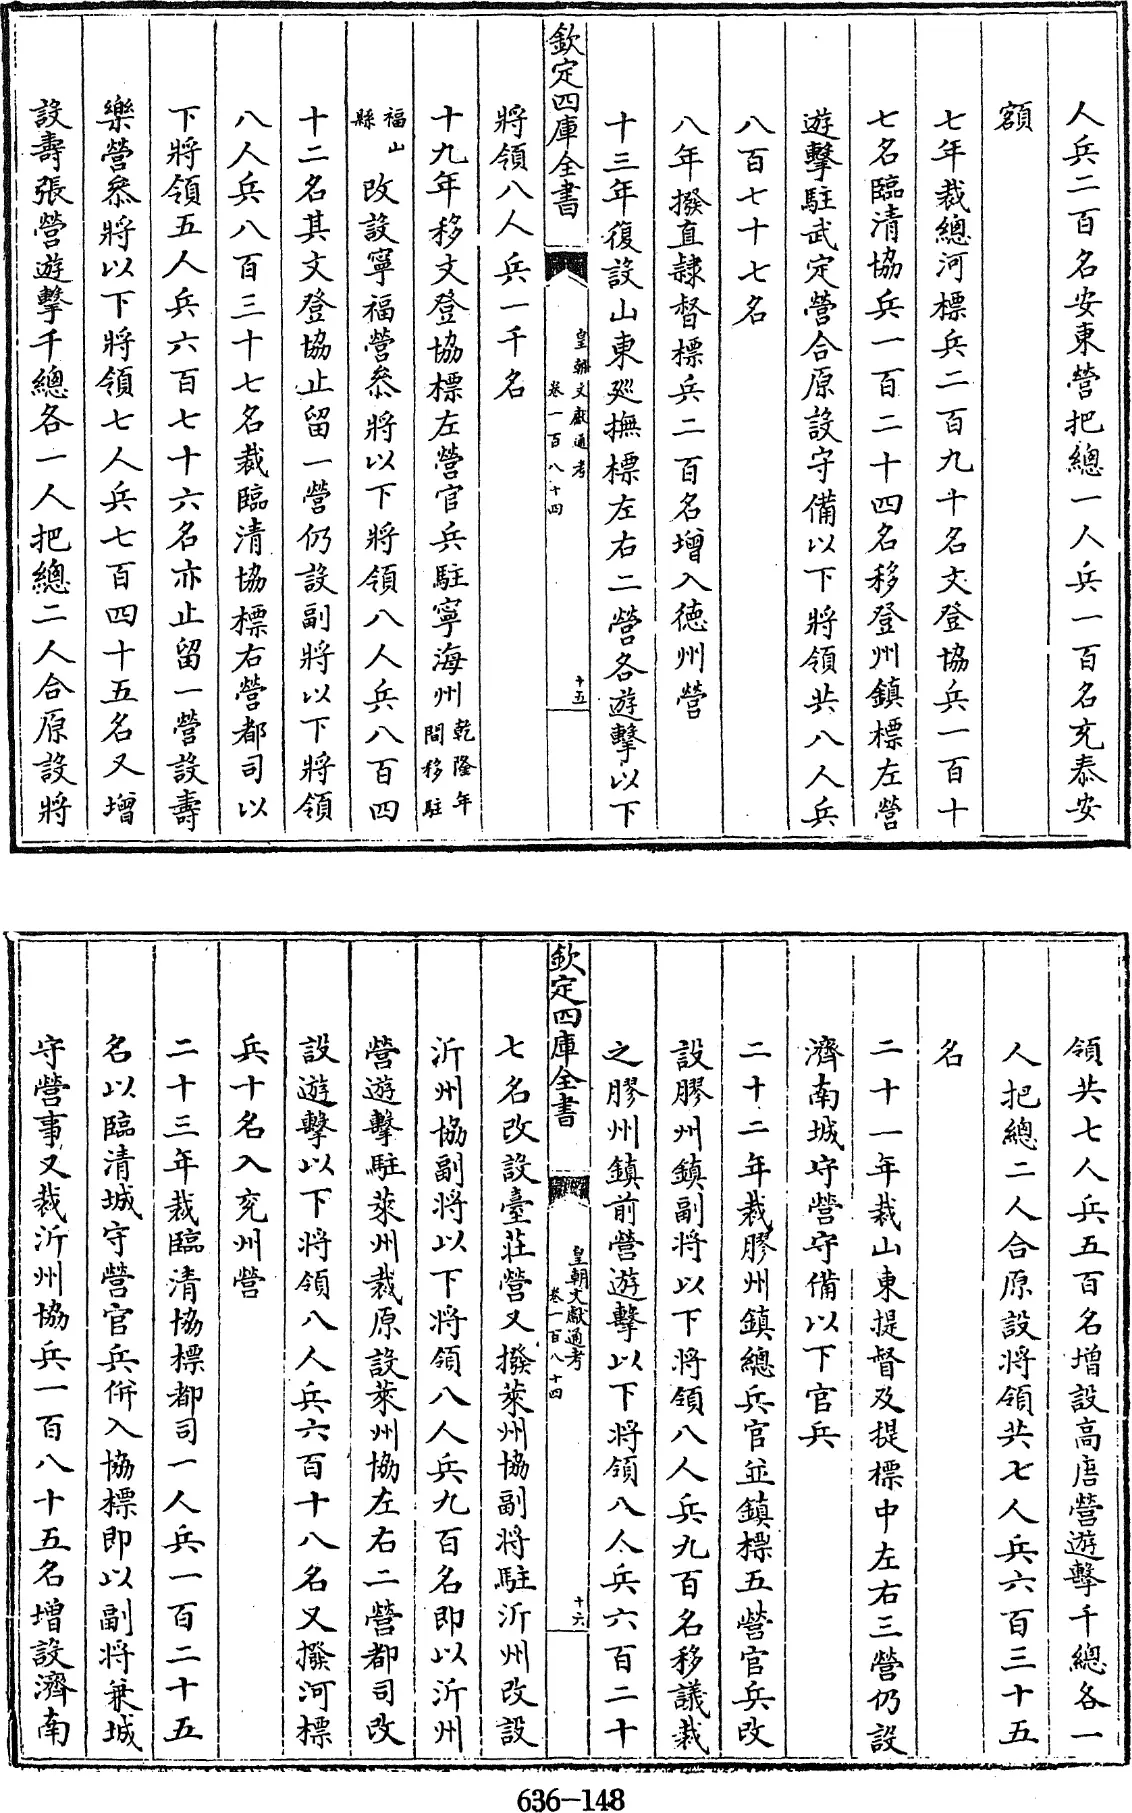 人兵二百名安東營把總一人兵一百名充泰安
額
七年裁總河標兵二百九十名文登協兵一百十
七名臨清協兵一百二十四名移登州鎮標左營
遊擊駐武定營合原設守備以下將領共八人兵
八百七十七名
八年撥直隸督標兵二百名增入德州營
十三年復設山東廵撫標左右二營各遊擊以下
欽定四庫全書
皇朝文獻通考
卷一百八十四
十五
將領八人兵一千名
十九年移文登協標左營官兵駐寧海州乾隆年
間移駐
福山
縣改設寧福營叅將以下將領八人兵八百四
十二名其文登協止留一營仍設副將以下將領
八人兵八百三十七名裁臨清協標右營都司以
下將領五人兵六百七十六名亦止留一營設壽
樂營叅將以下將領七人兵七百四十五名又增
設壽張營遊擊千總各一人把總二人合原設將
領共七人兵五百名增設高唐營遊擊千總各一
人把總二人合原設將領共七人兵六百三十五
名
二十一年裁山東提督及提標中左右三營仍設
濟南城守營守備以下官兵
二十二年裁膠州鎮總兵官並鎮標五營官兵改
設膠州鎮副將以下將領八人兵九百名移議裁
之膠州鎮前營遊擊以下將領八人兵六百二十
欽定四庫全書
皇朝文獻通考
卷一百八十四
十六
七名改設臺莊營又撥萊州協副將駐沂州改設
沂州協副將以下將領八人兵九百名即以沂州
營遊擊駐萊州裁原設萊州協左右二營都司改
設遊擊以下將領八人兵六百十八名又撥河標
兵十名入兗州營
二十三年裁臨清協標都司一人兵一百二十五
名以臨清城守營官兵併入協標即以副將兼城
守營事又裁沂州協兵一百八十五名增設濟南
636—148